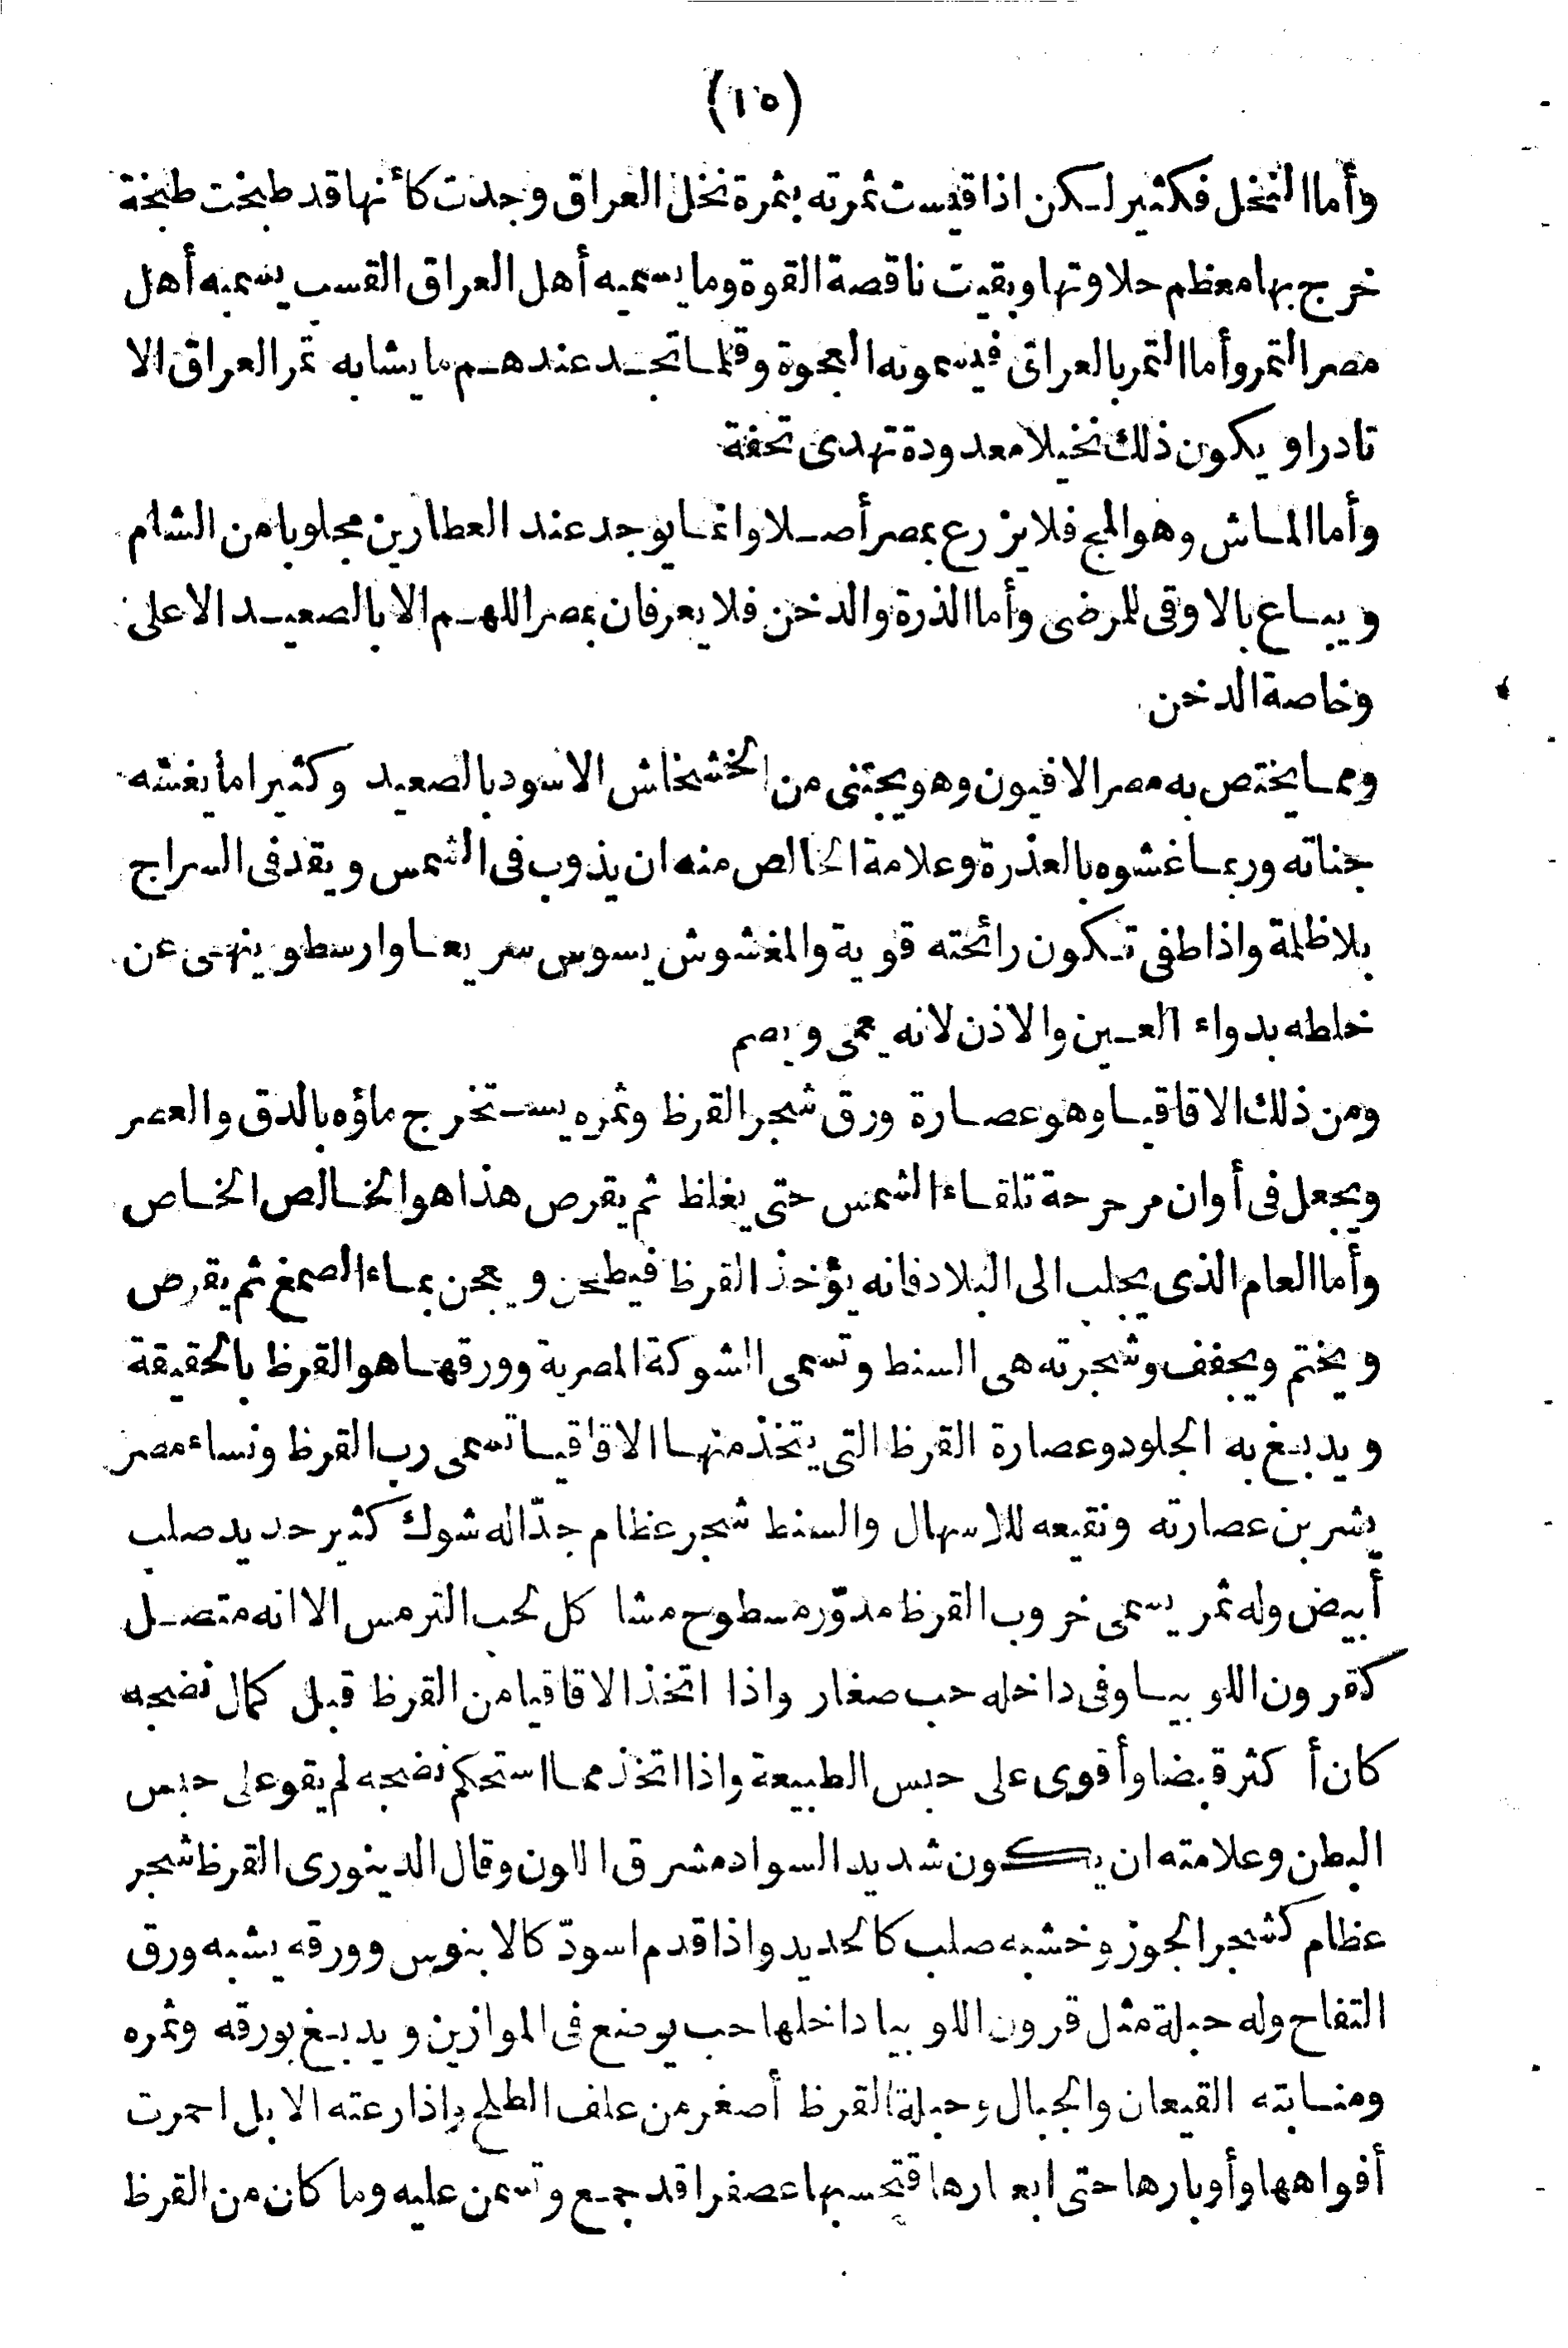 (١٥)
وأما النخل فكثير لكن اذا قيست ثمرته بثمرة نخل العراق وجدت كأنها قد طبخت طبخة
خرج بها معظم حلاوتها وبقيت ناقصة القوة وما يسميه أهل العراق القسب يسميه أهل
مصر التمر وأما التمر بالعراق فيسمونه العجوة وقلما تجد عندهم ما يشابه تمر العراق الا
نادرا ويكون ذلك نخيلا معدودة تهدى تحفة
وأما الماش وهو المج فلا يزرع بمصر أصلا وانما يوجد عند العطارين مجلوبا من الشام
ويباع بالاوقى للمرضى وأما الذرة والدخن فلا يعرفان بمصر اللهم الا بالصعيد الاعلى
وخاصة الدخن
ومما يختص به مصر الافيون وهو يجتنى من الخشخاش الاسود بالصعيد وكثيرا ما يغشه
جناته وربما غشوه بالعذرة وعلامة الخالص منه ان يذوب فى الشمس ويقد فى السراج
بلا ظلمة واذا طفى تكون رائحته قوية والمغشوش يسوس سريعا وارسطو ينهى عن
خلطه بدواء العين والاذن لانه يعمى ويصم
ومن ذلك الاقاقيا وهو عصارة ورق شجر القرظ وثمره يستخرج ماؤه بالدق والعصر
ويجعل فى أوان مرحرحة تلقاء الشمس حتى يغلظ ثم يقرص هذا هو الخالص الخاص
وأما العام الذى يجلب الى البلاد فانه يؤخذ القرظ فيطحن ويعجن بماء الصمغ ثم يقرص
ويختم ويجفف وشجرته هى السنط وتسمى الشوكة المصرية وورقها هو القرظ بالحقيقة
ويدبغ به الجلود وعصارة القرظ التى يتخذ منها الاقاقيا تسمى رب القرظ ونساء مصر
يشربن عصارته ونقيعه للاسهال والسنط شجر عظام جدّا له شوك كثير حديد صلب
أبيض وله ثمر يسمى خروب القرظ مدوّر مسطوح مشاكل لحب الترمس الا انه متصل
كقرون اللوبيا وفى داخله حب صغار واذا اتخذ الاقاقيا من القرظ قبل كمال نضجه
كان أكثر قبضا وأقوى على حبس الطبيعة واذا اتخذ مما استحكم نضجه لم يقو على حبس
البطن وعلامته ان يكون شديد السواد مشرق اللون وقال الدينورى القرظ شجر
عظام كشجر الجوز وخشبه صلب كالحديد واذا قدم اسودّ كالابنوس وورقه يشبه ورق
التفاح وله حبلة مثل قرون اللوبيا داخلها حب يوضع فى الموازين ويدبغ بورقه وثمره
ومنابته القيعان والجبال وحبلة القرظ أصغر من علف الطلح واذا رعته الابل احمرت
أفواهها وأوبارها حتى ابعارها فتحسبها عصفرا قد جمع وتسمن عليه وما كان من القرظ